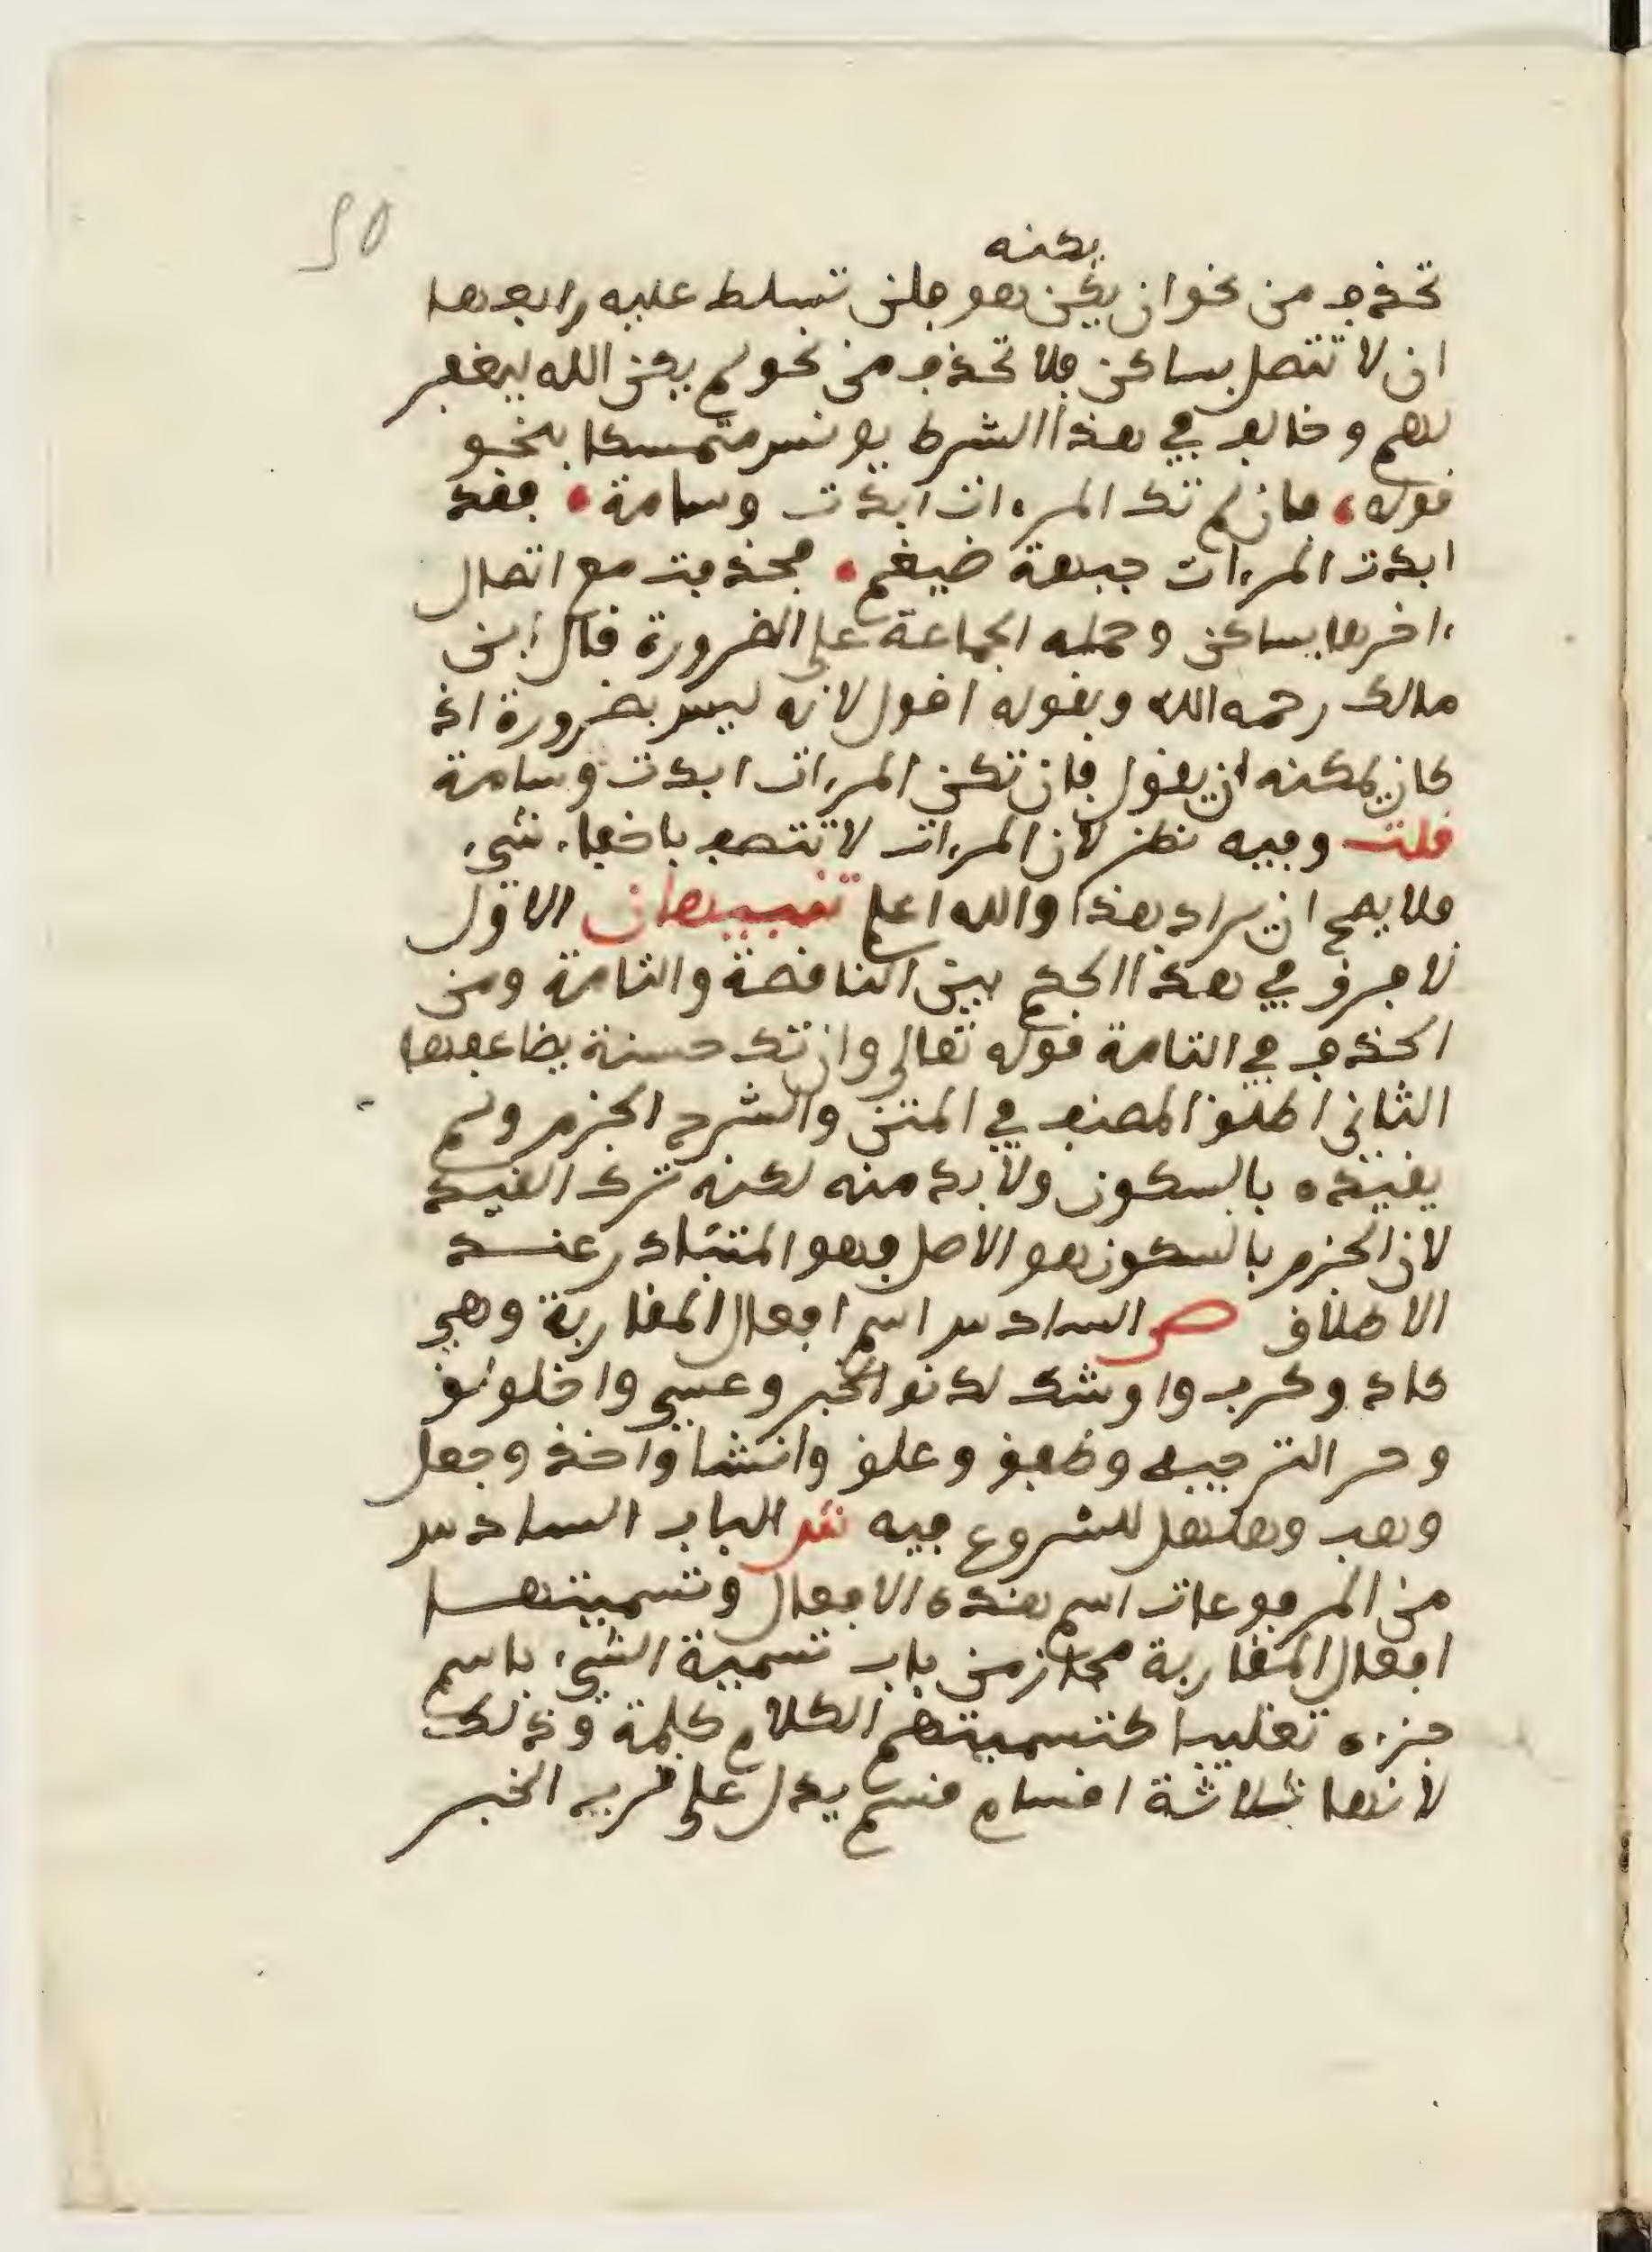 يكنه
تحذف من نحو ان يكن هو فلن تسلط عليه رابعها
ان لا تتصل بساكن فلا تحذف من نحو لم يكن الله ليغفر
لهم وخالف في هذا الشرط يونس متمسكا بنحو
قوله، فان لم تك المرءات ابدت وسامة، فقد
ابدت المرءات جبهة ضيغم، فحذفت مع اتصال
ءاخرها بساكن وحمله الجماعة على الضرورة قال ابن
مالك رحمه الله وبقوله اقول لانه ليس بضرورة اذ
كان يمكنه ان يقول فان تكن المرءات ابدت وسامة
قلت وفيه نظر لان المرءات لا تتصف باخفاء شيء
فلا يصح ان يراد هذا والله اعلم تنبيهان الاول
لا فرق في هذا الحكم بين الناقصة والتامة ومن
الحذف في التامة قوله تعالى وان تك حسنة يضاعفها
الثاني اطلق المصنف في المتن والشرح الجزم ولم
يقيده بالسكون ولا بد منه لكنه ترك القيد
لان الجزم بالسكون هو الاصل وهو المتبادر عند
الاطلاق ص السادس اسم افعال المقاربة وهي
كاد وكرب واوشك لدنو الخبر وعسى واخلولق
وحر الترجيه وطفق وعلق وانشا واخذ وجعل
وهب وهلهل للشروع فيه ش الباب السادس
من المرفوعات اسم هذه الافعال وتسميتها
افعال المقاربة مجاز من باب تسمية الشيء باسم
جزءه تغليبا كتسميتهم الكلام كلمة وذلك
لانها ثلاثة اقسام قسم يدل على قرب الخبر